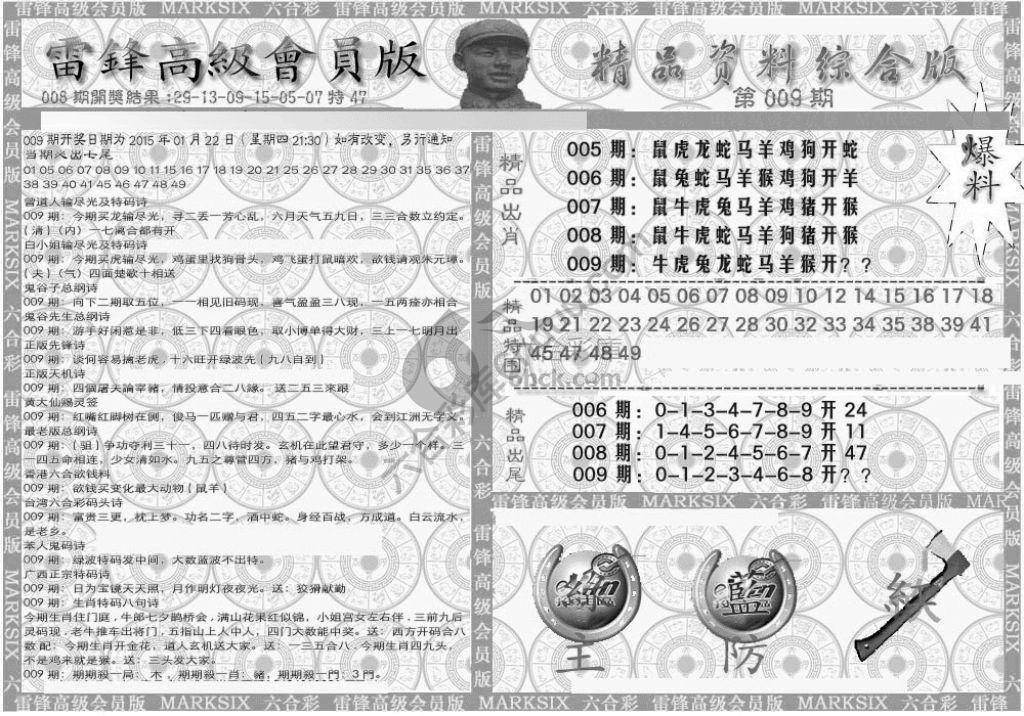 雷锋高级会员版 MARKSIX 六合彩 雷锋高级会员版 MARKSIX 六合彩 雷锋高级会员版 MARKSIX 六合彩 雷锋
雷鋒高級會員版
精品资料综合版
008 期開獎結果 :29-13-09-15-05-07 特 47
第 009 期
爆料
009 期开奖日期为 2015 年 01 月 22 日（星期四 21:30）如有改变，另行通知
当期必出七尾
01 05 06 07 08 09 10 11 15 16 17 18 19 20 21 25 26 27 28 29 30 31 35 36 37
38 39 40 41 45 46 47 48 49
曾道人输尽光及特码诗
009 期：今期买龙输尽光，寻二丢一芳心乱，六月天气五九日，三三合数立约定。
（清）（内）一七离合都有开
白小姐输尽光及特码诗
009 期：今期买虎输尽光，鸡蛋里找狗骨头，鸡飞蛋打鼠暗欢，欲钱请观朱元璋。
（夫）（气）四面楚歌十相送
鬼谷子总纲诗
009 期：向下二期取五位，一一相见旧码现，喜气盈盈三八现，一五两痊亦相合
鬼谷先生总纲诗
009 期：游手好闲惹是非，低三下四看眼色，取小博单得大财，三上一七明月出
正版先锋诗
009 期：谈何容易擒老虎，十六旺开绿波先（九八自到）
正版天机诗
009 期：四個屠夫論宰豬，情投意合二八緣。送二五三來跟
黄大仙赐灵签
009 期：红嘴红脚树在侧，俊马一匹赠与君，四五二字最心水，会到江洲无学义。
最老版总纲诗
009 期：（驵）争功夺利三十一，四八待时发。玄机在此望君守，多少一个样。三
一四五命相连，少女清如水。九五之尊管四方，猪与鸡打架。
香港六合欲钱料
009 期：欲钱买变化最大动物（鼠羊）
台湾六合彩码头诗
009 期：富贵三更，枕上梦。功名二字，酒中蛇。身经百战，方成道。白云流水，
是老乡。
苯人鬼码诗
009 期：绿波特码发中间，大数蓝波不出特。
广西正宗特码诗
009 期：日为宝镜天天照，月作明灯夜夜光。送：狡猾献勤
009 期：生肖特码八句诗
今期生肖住门庭，牛郎七夕鹊桥会，满山花果红似锦，小姐宫女左右伴，三前九后
灵码现，老牛推车出将门，五指山上人中人，四门大数能中奖。送：西方开码合八
数 配：今期生肖开金花，道人玄机送大家。送：一三五合八，今期生肖四九头，
不是鸡来就是猴。送：三头发大家。
009 期：期期殺一局：木，期期殺一肖：豬，期期殺一門：3 門。
精品出肖
005 期：鼠虎龙蛇马羊鸡狗开蛇
006 期：鼠兔蛇马羊猴鸡狗开羊
007 期：鼠牛虎兔马羊鸡猪开猴
008 期：鼠牛虎蛇马羊狗猪开猴
009 期：牛虎兔龙蛇马羊猴开？？
精品特围
01 02 03 04 05 06 07 08 09 10 12 14 15 16 17 18
19 21 22 23 24 26 27 28 30 32 33 34 35 38 39 41
45 47 48 49
精品出尾
006 期：0-1-3-4-7-8-9 开 24
007 期：1-4-5-6-7-8-9 开 11
008 期：0-1-2-4-5-6-7 开 47
009 期：0-1-2-3-4-6-8 开？？
雷锋高级会员版 MARKSIX 六合彩 雷锋高级会员版 MAR
主
藍
防
綠
雷锋高级会员版 MARKSIX 六合彩 雷锋高级会员版 MARKSIX 六合彩 雷锋高级会员版 MARKSIX 六合彩 雷锋